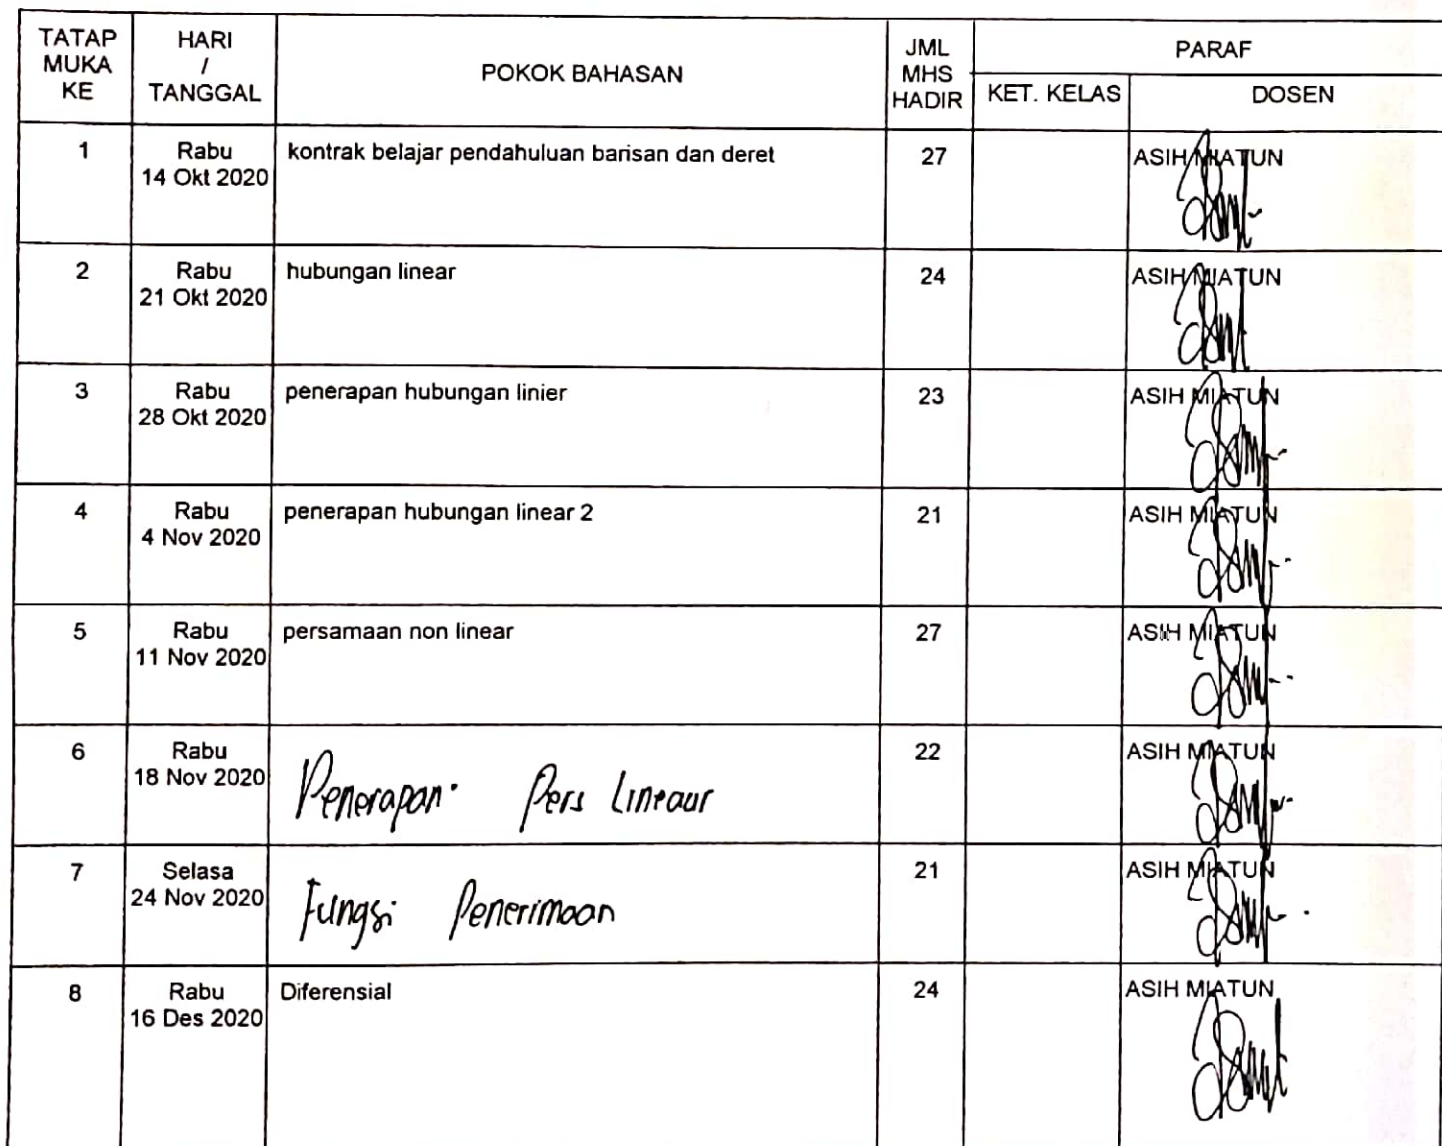 TATAP MUKA KE
HARI / TANGGAL
POKOK BAHASAN
JML MHS HADIR
PARAF
KET. KELAS
DOSEN
1
Rabu
14 Okt 2020
kontrak belajar pendahuluan barisan dan deret
27
ASIH MIATUN
2
Rabu
21 Okt 2020
hubungan linear
24
ASIH MIATUN
3
Rabu
28 Okt 2020
penerapan hubungan linier
23
ASIH MIATUN
4
Rabu
4 Nov 2020
penerapan hubungan linear 2
21
ASIH MIATUN
5
Rabu
11 Nov 2020
persamaan non linear
27
ASIH MIATUN
6
Rabu
18 Nov 2020
Penerapan Pers Lineaur
22
ASIH MIATUN
7
Selasa
24 Nov 2020
Fungsi Penerimaan
21
ASIH MIATUN
8
Rabu
16 Des 2020
Diferensial
24
ASIH MIATUN